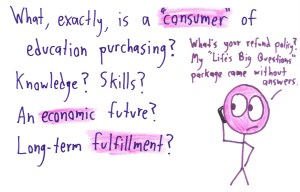 What, exactly, is a "consumer" of
education purchasing?
Knowledge? Skills?
An economic future?
Long-term fulfillment?
What's your refund policy?
My "Life's Big Questions"
package came without
answers.